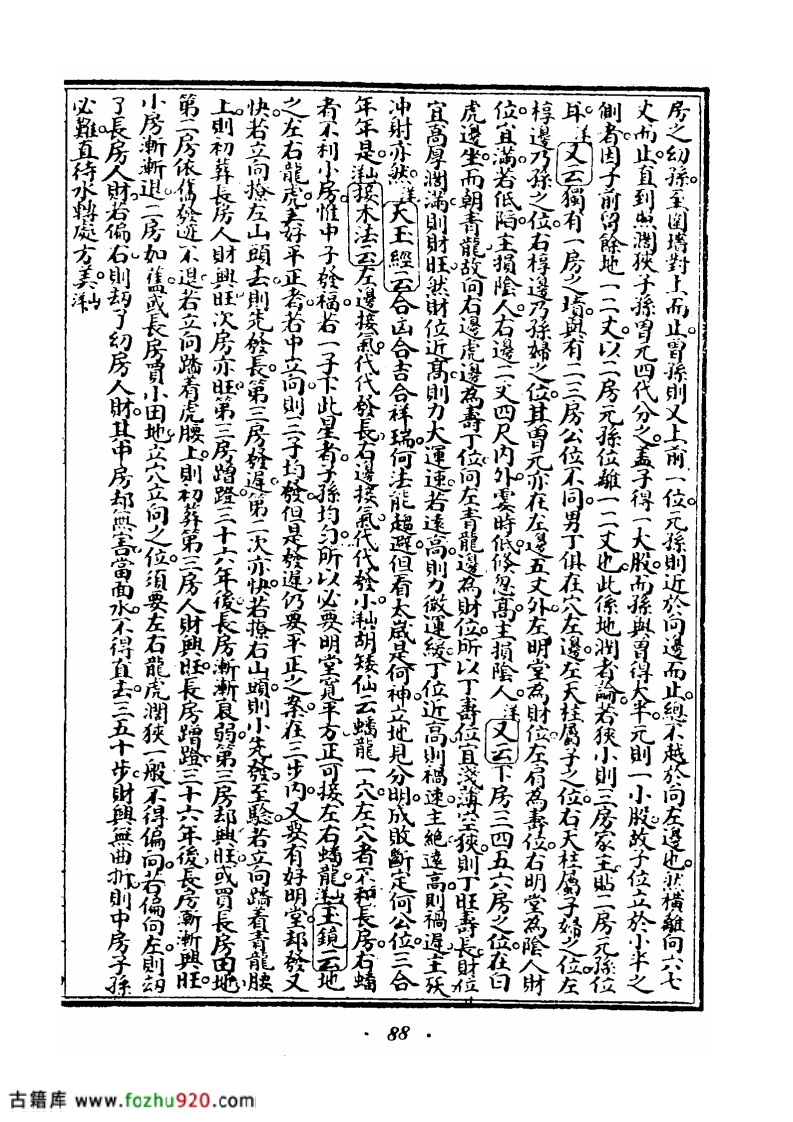 房之幼孫至圍墻對上而止曾孫則又上前一位元孫則近於向邊而止總不越於向左邊也然橫離向六七
丈而止直到照濶狹子孫曾元四代分之蓋子得一大股而孫與曾得大半元則一小股故子位立於小半之
側者因子前留餘地一二丈以二房元孫位離一二丈也此係地濶者論若狹小則三房家主貼二房元孫位
耳 又云獨有一房之墳與有二三房公位不同男丁俱在穴左邊左天柱屬子之位右天柱屬子婦之位左
椁邊乃孫之位右椁邊乃孫婦之位其曾元亦在左邊五丈外左明堂為財位左肩為壽位右明堂為陰人財
位宜滿若低陷主損陰人右邊二丈四尺內外霎時低倏忽高主損陰人 又云下房三四五六房之位在曰
虎邊坐而朝青龍故向右邊虎邊為壽丁位向左青龍邊為財位所以丁壽位宜淺薄窄狹則丁旺壽長財位
宜高厚濶滿則財旺然財位近高則力大運速若遠高則力微運緩丁位近高則禍速主絕遠高則禍遲主殀
冲射亦然 天玉經云合凶合吉合祥瑞何法能趨避但看太歲是何神立地見分明成敗斷定何公位三合
年年是 接木法云左邊接氣代代發長右邊接氣代代發小 胡矮仙云蟠龍一穴左穴者不和長房右蟠
者不利小房惟中子發福若一子下此星者子孫均勻所以必要明堂寬平方正可接左右蟠龍 玉鏡云地
之左右龍虎美好平正者若中立向則三子均發但是發遲仍要平正之案在三步內又要有好明堂却發又
快若立向撩左山頭去則先發長第三房發遲第二次亦快若撩右山頭則小先發至驗若立向踏着青龍腰
上則初葬長房人財興旺次房亦旺第三房蹭蹬三十六年後長房漸漸衰弱第三房却興旺或買長房田地
第二房依舊發跡不退若立向踏着虎腰上則初葬第三房人財興旺長房蹭蹬三十六年後長房漸漸興旺
小房漸漸退二房如舊或長房買小田地立穴立向之位須要左右龍虎濶狹一般不得偏向若偏向左則刼
了長房人財若偏右則刼了幼房人財其中房却無害當面水不得直去三五十步財興無曲折則中房子孫
必難直待水轉處方美
· 88 ·
古籍库 www.fozhu920.com